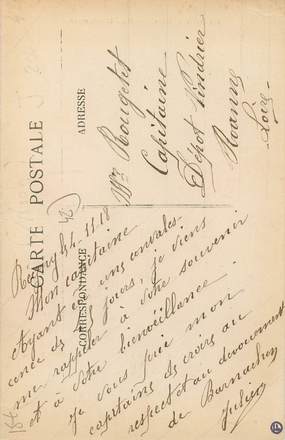 CARTE POSTALE
CORRESPONDANCE
ADRESSE
Mr Rougetet
Capitaine
Dépot Pindrier
Roanne
Loire
42
11 18
Mon capitaine
Ayant une convales-
cence de jours, je viens
me rappeler à votre souvenir
et à votre bienveillance
Je vous prie mon
capitaine de croire au
respect et au dévouement
de Barnachon
Julien